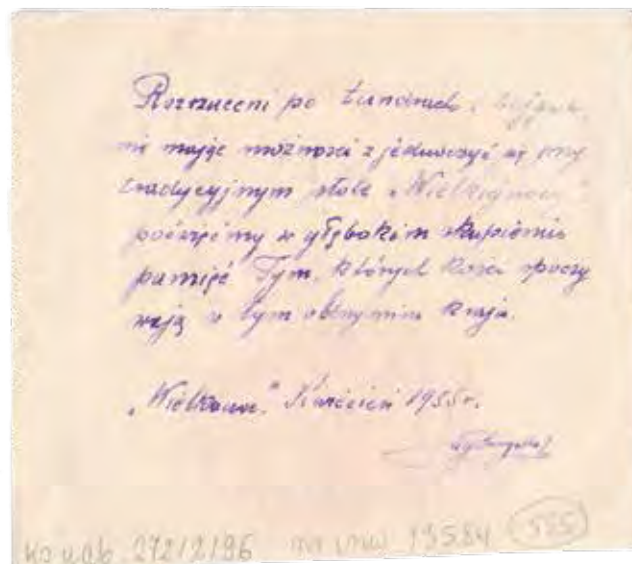 Rozrzuceni po tundrach i
nie mając możności zjednoczyć się przy
tradycyjnym stole „Wielkiejnocy”
poświęćmy w głębokim skupieniu
pamięć Tym, których kości spoczy
wają w tym olbrzymim kraju.
„Wielkanoc” Kwiecień 1955 r.
272/2/96 13584 585